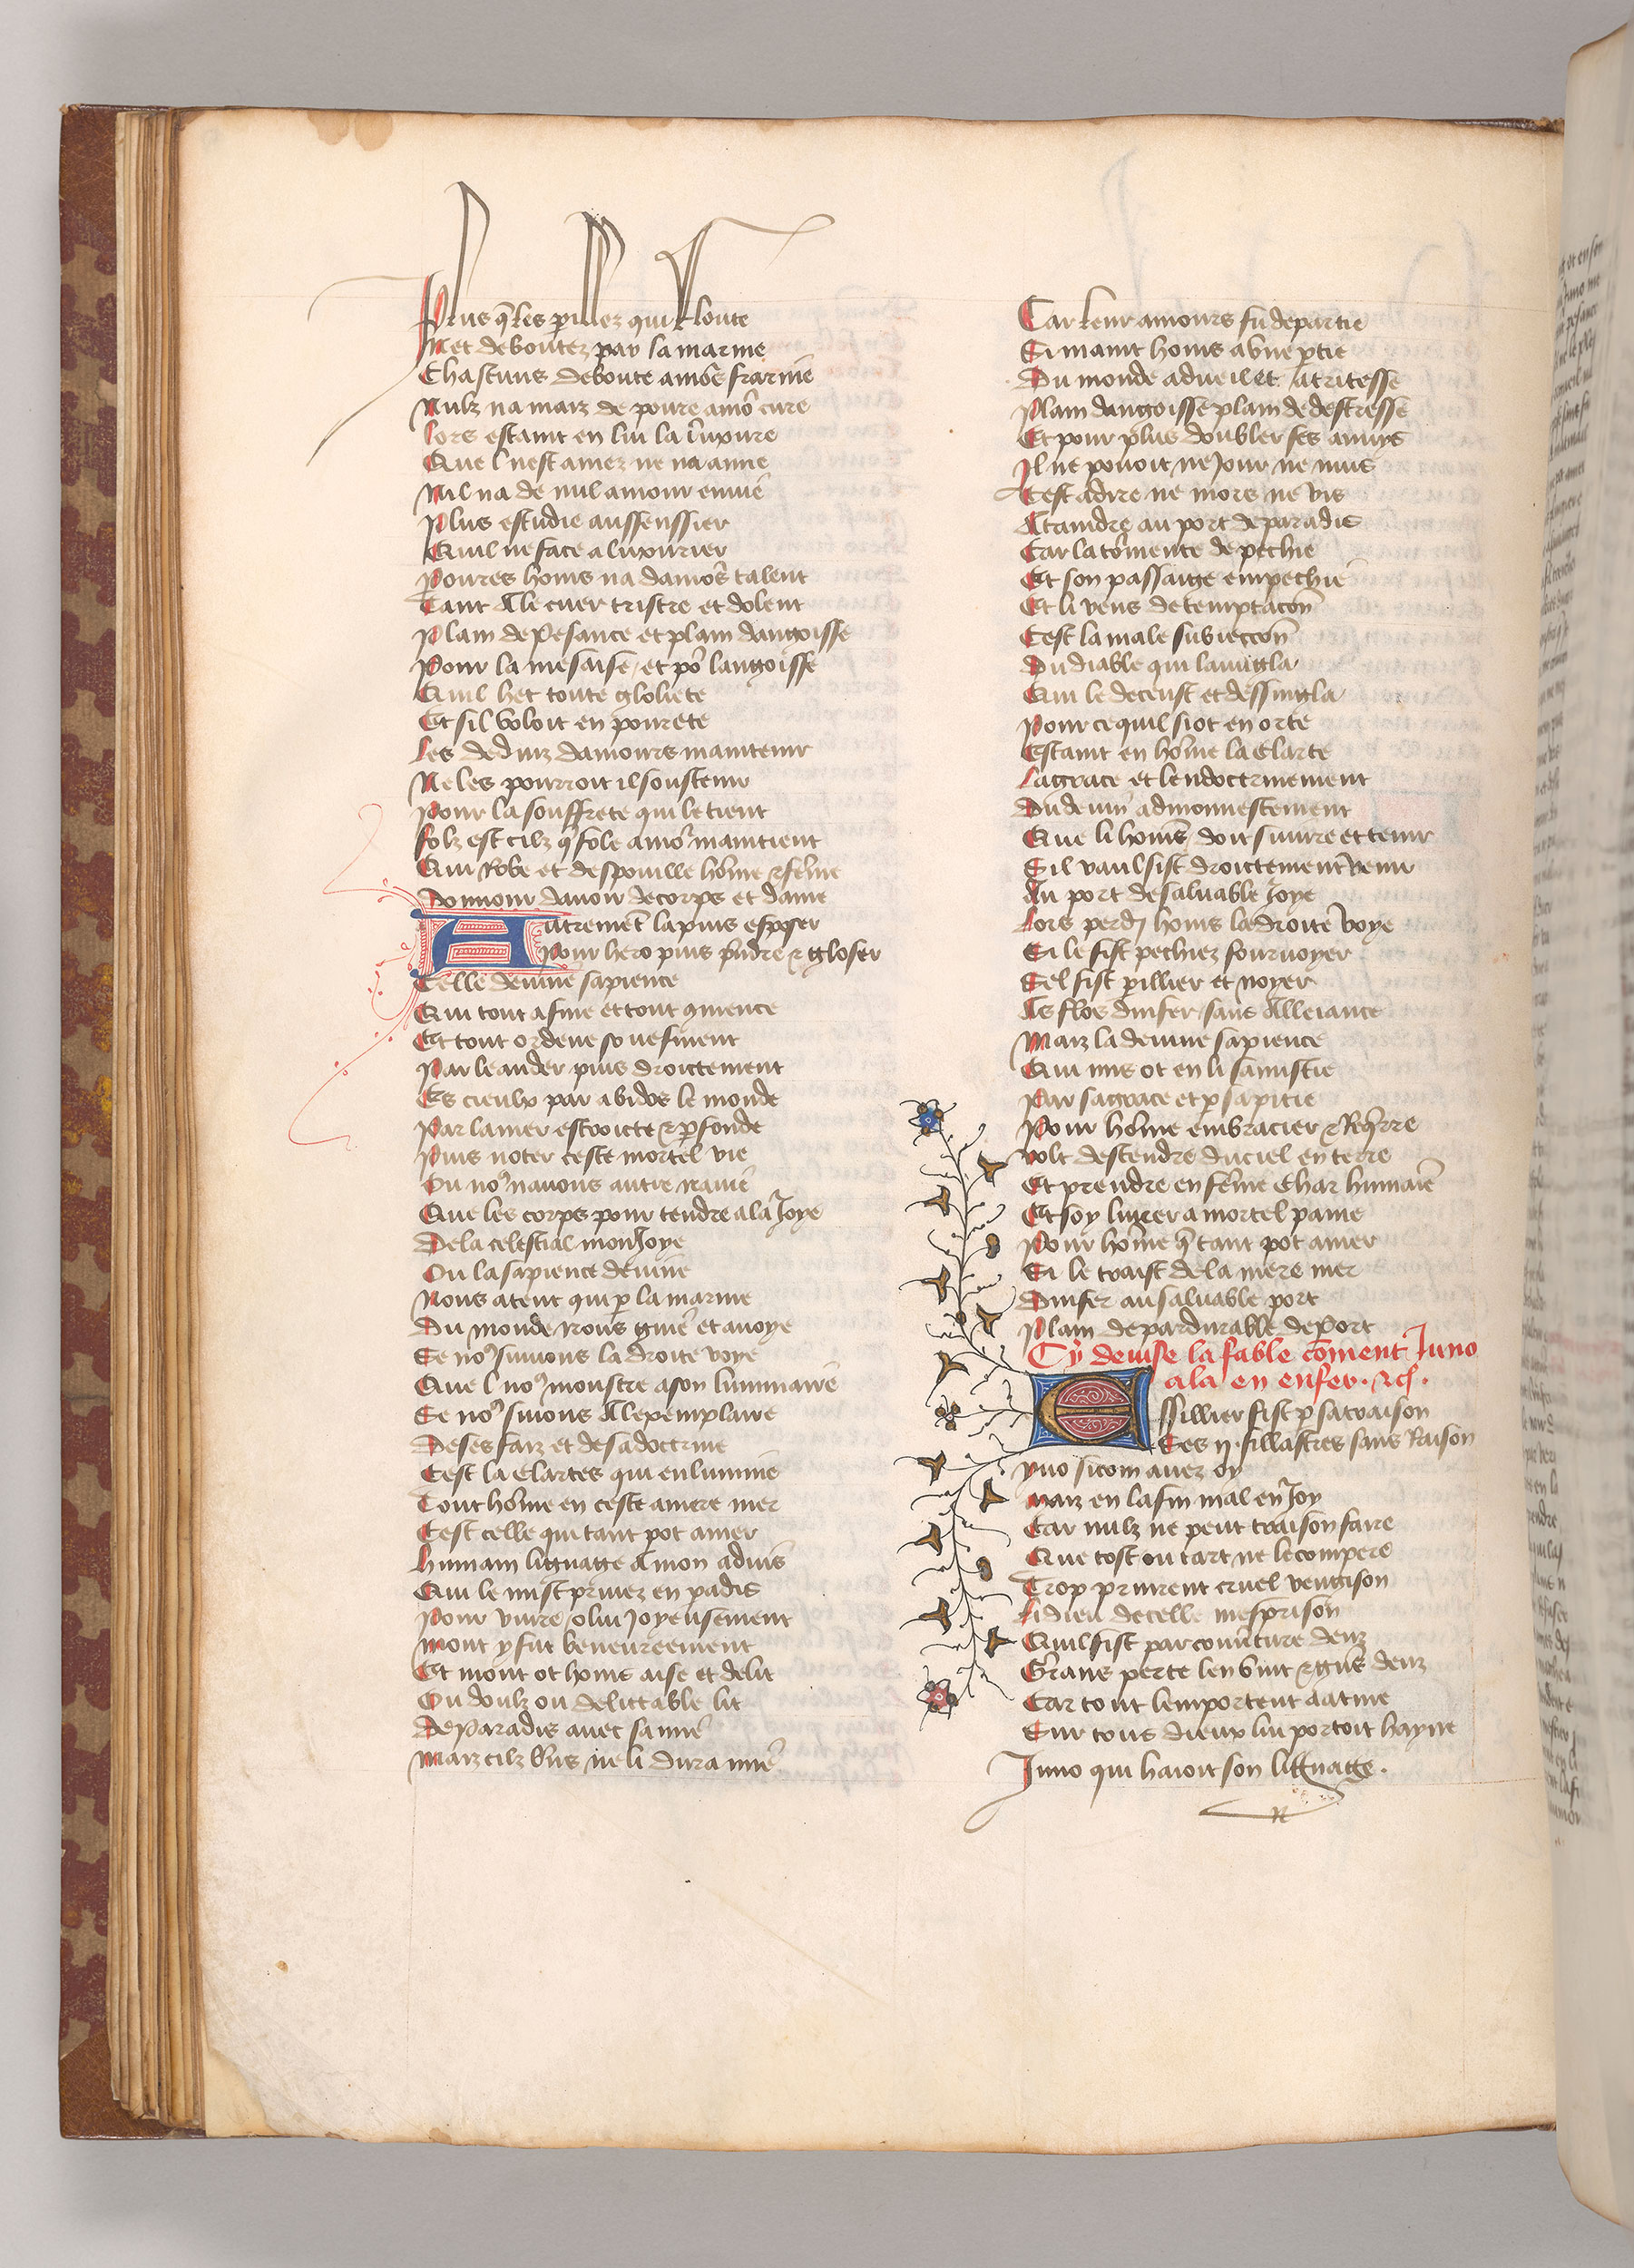 Plus q̄ les perillez qui floute
Et deboutez par la marine
Chascuns deboute amōs frarine
Nulz na maiz de poure amor cure
Lors estaint en lui la luxure
Que l nest amez ne na amie
Nil na de nul amour enuie
Plus estudie
Quil ne face a luxurier
Poures homs na damors talent
Tant A le cuer tristre et dolent
Plain de Pesance et plain dangoisse
Pour la mesaise et por langoisse
Quil het toute
Et sil voloit en pourete
Les deduiz damours maintenir
Ne les pourroit il soustenir
Pour la souffrete qui le tient
Folz est cilz q̄ fole amor maintient
Qui Robe et despouille home & feme
Donnour dauoir de corps et dame
Autremēt la puis esposer
Pour hero puis prendre & gloser
Celle deuine sapience
Qui tout afine et tout 9mence
Et tout ordene
Par leander puis droictement
Es cieulx par abidos le monde
Par la mer estroicte & pfonde
Puis noter ceste mortel vie
Ou no9 nauons autre nauie
Que les corps pour tendre a la Joye
De la celestial monJoye
Ou la sapience deuine
Nous atent qui p la marine
Du monde nous guie et auoye
Se no9 suiuons la droite voye
Que l no9 monstre a son luminaire
Se no9 suiuons A lexemplaire
De ses faiz et de sa doctrine
Cest la clartes qui enlumine
Tout home en ceste amere mer
Cest celle qui tant pot amer
Humain lignaige A mon aduis
Qui le mist priuez en padis
Pour viure o lui Joyeusement
Mont y fut beneureement
Et mont ot homs aise et delit
Ou doulz ou delittable lit
De Paradis auec samie
Maiz cilz ne li dura mie
Car leur amours fu departie
Si maint homs a vne ptie
Du monde a dueil et a tristesse
Plain dangoisse plain de destresse
Et pour plus doubler ses anuys
Il ne pouoit ne Jour ne nuis
Cest a dire ne mors ne vis
Ataindre au port de paradis
Car la tormente de pechie
Et son passaige empechie
Et li vens de temptacon
Cest la male subieccon
Du diable qui lauugla
Qui le deceust et dessingla
Pour ce quil siot en orte
Estaint en home la clarte
La grace et lendoctrinement
Du deuin admonnestement
Que li homs doit suiure et tenir
Sil vaulsist droictement venir
Au port de saluable Joye
Lors perdi homs la droite voye
Si le fist pechiez fouruoyer
Sel fist pillier et noyer
Es flos dinfer sans Alleiance
Maiz la deuine sapience
Qui mis ot en li samistie
Par sa grace et p sa pitie
Pour home embracier & Reqrre
Volt descendre du ciel en terre
Et prendre en feme Char humaie
Et soy liurer a mortel paine
Pour home q̄ tant pot amer
Si le traist de la mere mer
Dinfer au saluable port
Plain de pardurable deport
Cy deuise la fable cōment Juno
ala en enfer. &c.
Essillier fist p sa traison
Ses ij. fillastres sans Raison
Yno sicom auez oy
Maiz en la fin mal en Joy
Car nulz ne peut traison faire
Que tost ou tart ne le compere
Trop prinrent cruel vengison
Li dieu de celle mesprison
Quil fist par deuz
Grans perte len vint & grās deuz
Car tout lemportent a atine
Sur tous dieux lui portoit hayne
Juno qui haioit son lignaige.